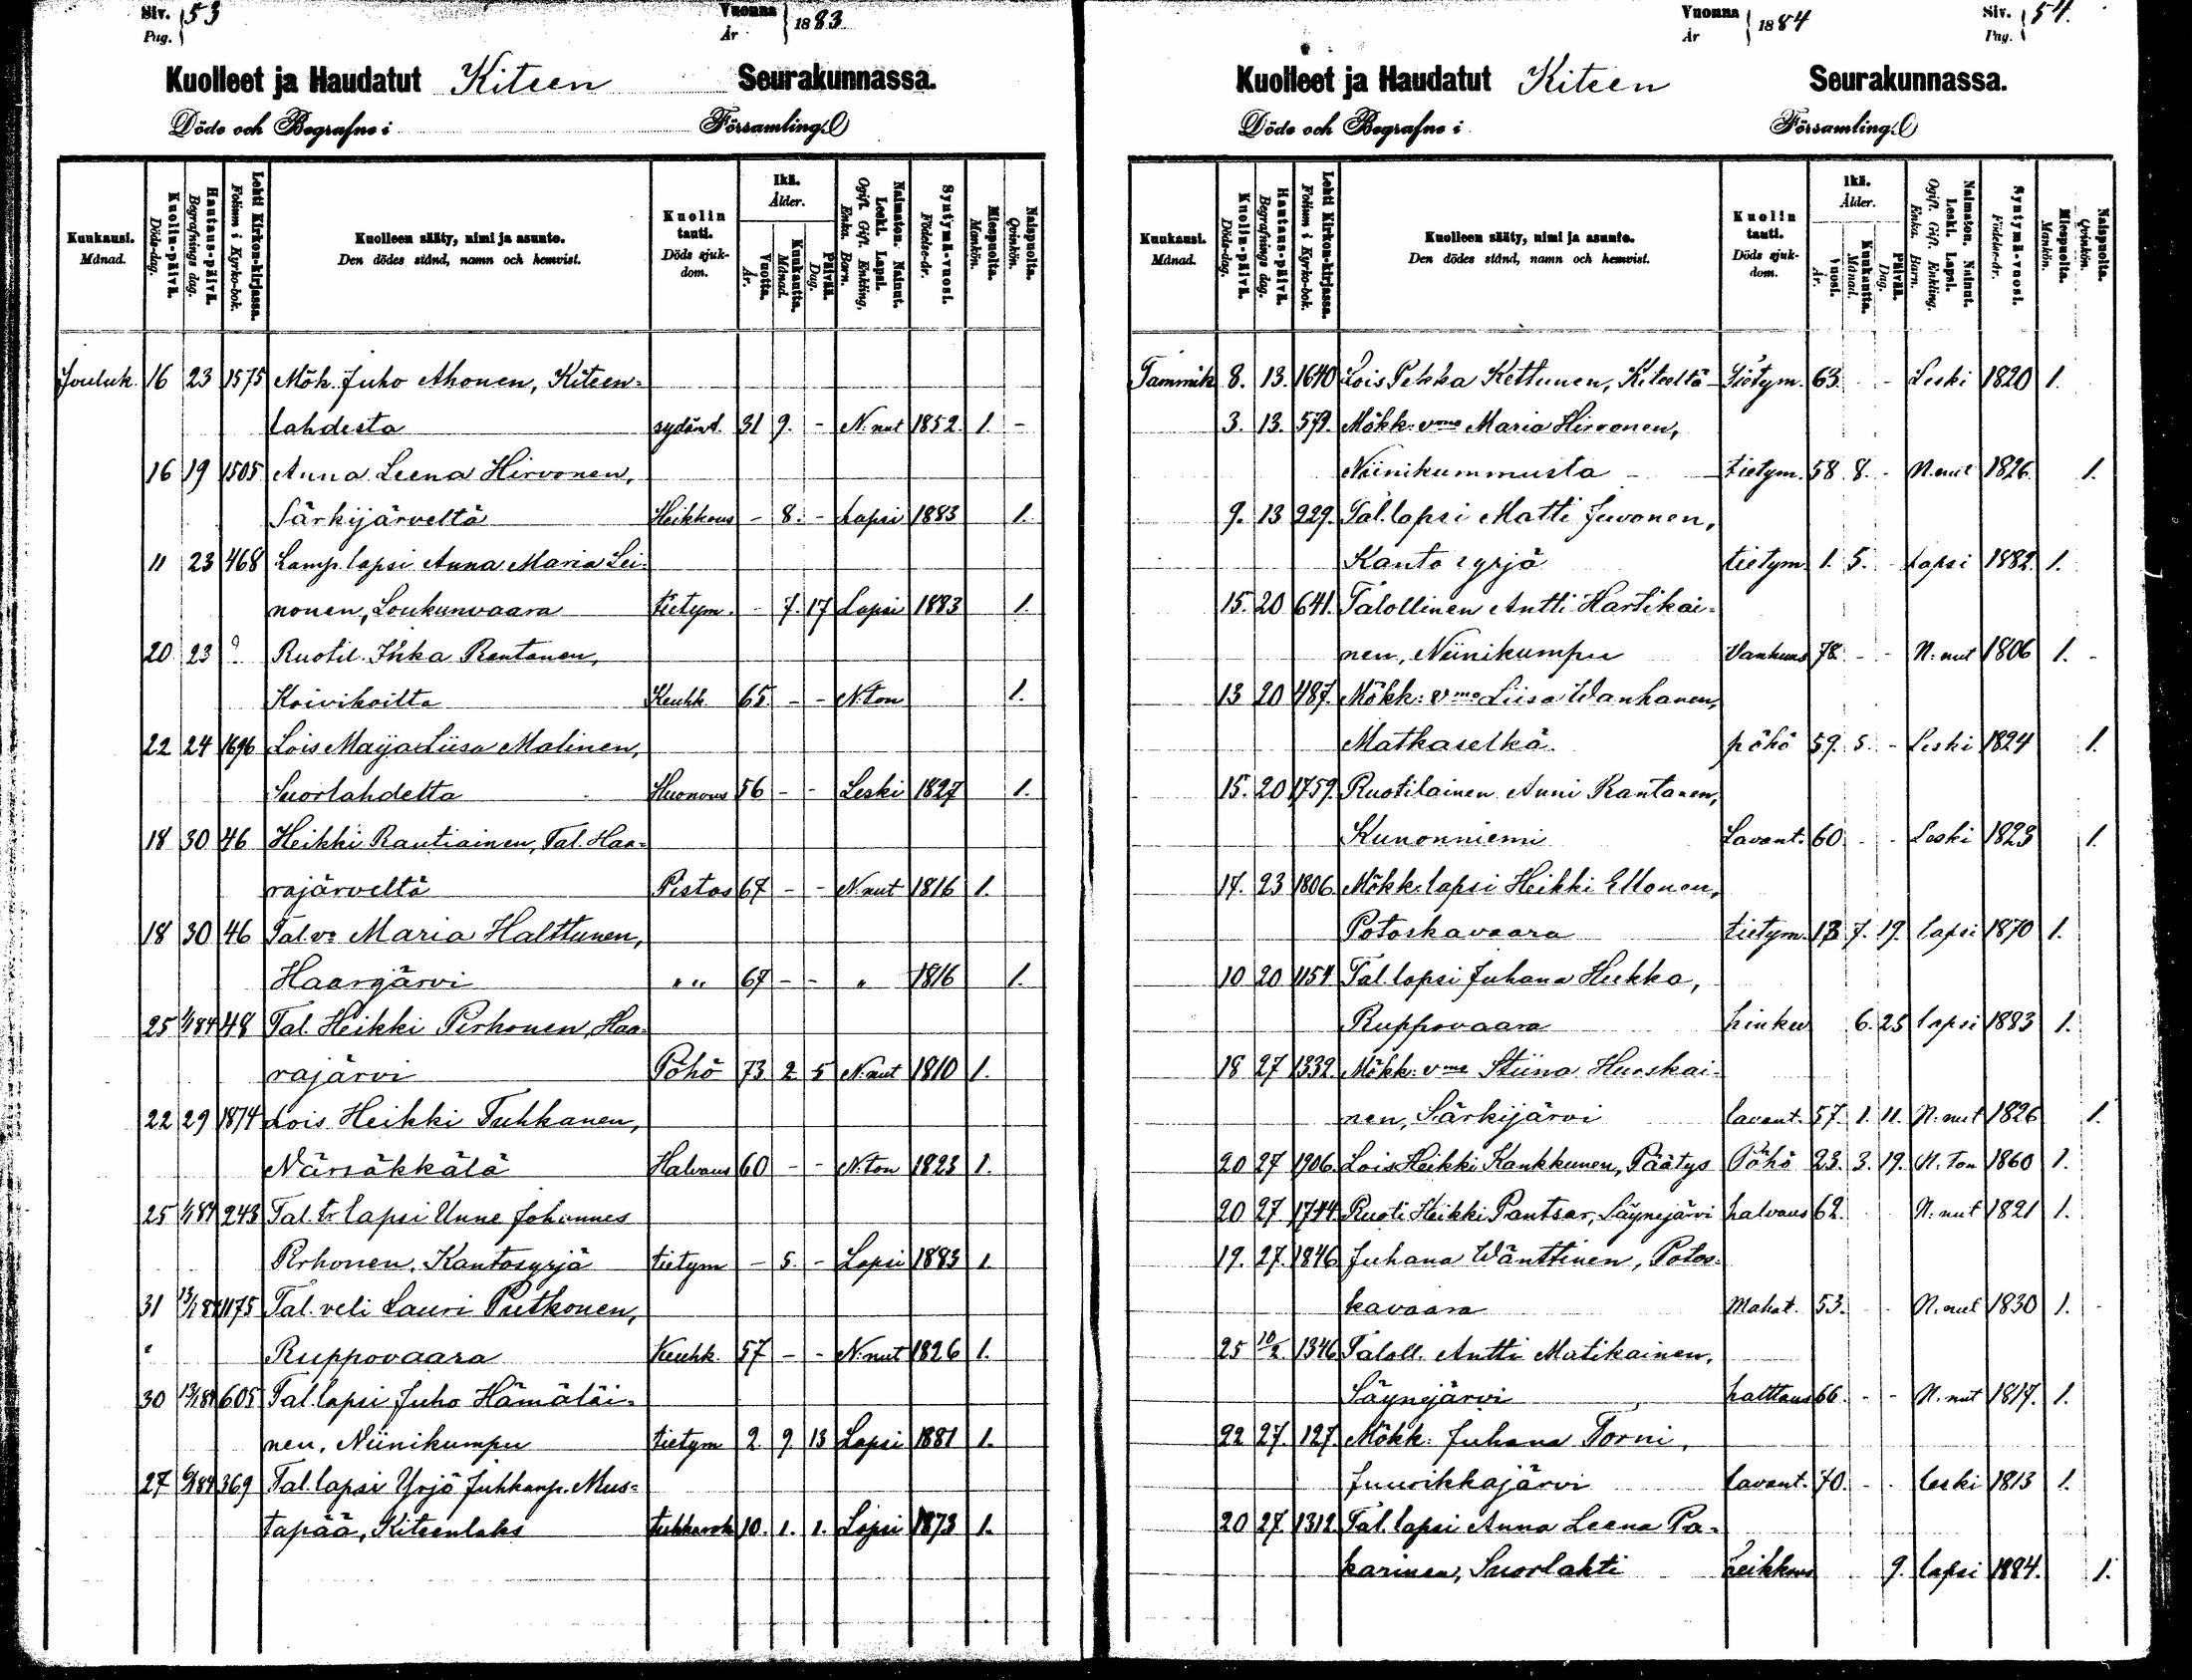 Siv. Pag. 53
Vuonna År 1883
Kuolleet ja Haudatut Kiteen Seurakunnassa.
Döde och Begrafne i Församling.
Kuukausi. Månad.
Kuolin-päivä. Döds-dag.
Hautaus-päivä. Begrafnings dag.
Lehti Kirkon-kirjassa. Folium i Kyrko-bok.
Kuolleen sääty, nimi ja asunto. Den dödes stånd, namn och hemvist.
Kuolin tauti. Döds sjukdom.
Ikä. Ålder.
Vuotta. År.
Kuukautta. Månad.
Päivää. Dag.
Naimaton. Nainut. Leski. Lapsi. Ogift. Gift. Enkling. Enka. Barn.
Syntymä-vuosi. Födelse-år.
Miespuolta. Mankön.
Naispuolta. Qvinkön.
Jouluk. 16 23 1575 Mök. Juho Ahonen, Kiteen-
lahdesta sydänt. 31 9. - N:nut 1852. 1. -
16 19 1505 Anna Leena Hirvonen,
Särkijärveltä Heikkous - 8. - Lapsi 1883 1.
11 23 468 Lamp. lapsi Anna Maria Lei-
nonen, Loukunvaara tietym. - 7. 17 Lapsi 1883 1.
20 23 ? Ruotil. Ihka Rantanen,
Koivikoilta Keuhk. 65. - - N:ton 1.
22 24 1696 Lois Maija Liisa Malinen,
Suorlahdelta Huonous 56 - - Leski 1827 1.
18 30 46 Heikki Rautiainen, Tal. Haa-
rajärveltä Pistos 67 - - N:nut 1816 1.
18 30 46 Tal. vo Maria Halttunen,
Haarajärvi " " 67 - - " 1816 1.
25 1/1 84 48 Tal. Heikki Perhonen, Haa-
rajärvi Pöhö 73 2 5 N:nut 1810 1.
22 29 1874 Lois Heikki Tuhkanen,
Närsäkkälä Halvaus 60 - - N:ton 1823 1.
25 1/1 84 243 Tal. tr lapsi Unne Johannes
Pirhonen, Kantosyrjä tietym - 5. - Lapsi 1883 1.
31 13/1 84 1175 Tal. veli Lauri Putkonen,
Ruppovaara Keuhk. 57 - - N:nut 1826 1.
30 13/1 84 605 Tal. lapsi Juho Hämäläi-
nen, Niinikumpu tietym 2. 9 13 Lapsi 1881 1.
27 6/1 84 369 Tal. lapsi Yrjö Juhkanp. Mus-
tapää, Kiteenlaks tuhkarok 10. 1. 1. Lapsi 1873 1.
Vuonna År 1884
Siv. Pag. 54.
Kuolleet ja Haudatut Kiteen Seurakunnassa.
Döde och Begrafne i Församling.
Kuukausi. Månad.
Kuolin-päivä. Döds-dag.
Hautaus-päivä. Begrafnings dag.
Lehti Kirkon-kirjassa. Folium i Kyrko-bok.
Kuolleen sääty, nimi ja asunto. Den dödes stånd, namn och hemvist.
Kuolin tauti. Döds sjukdom.
Ikä. Ålder.
Vuosi. År.
Kuukautta. Månad.
Päivää. Dag.
Naimaton. Nainut. Leski. Lapsi. Ogift. Gift. Enkling. Enka. Barn.
Syntymä-vuosi. Födelse-år.
Miespuolta. Mankön.
Naispuolta. Qvinkön.
Tammik 8. 13. 1640 Lois Pekka Kettunen, Kiteeltä Tietym. 63. - Leski 1820 1.
3. 13. 579. Mökk: vmo Maria Hirvonen,
Niinikummusta tietym. 58. 8. - N.nut 1826. 1.
9. 13 229. Tal. lapsi Matti Juvonen,
Kantosyrjä tietym. 1. 5. - Lapsi 1882. 1.
15. 20 641. Talollinen Antti Hartikai-
nen, Niinikumpu Vanhuus 78. - - N:nut 1806 1. -
13 20 487. Mökk: vmo Liisa Wanhanen,
Matkaselkä. pöhö 59. 5. - Leski 1824 1.
15. 20 1759. Ruotilainen Anni Rantanen,
Kunonniemi Lavant. 60. - - Leski 1823 1.
14. 23 1806. Mökk. lapsi Heikki Ellonen,
Potoskavaara tietym. 13 7. 19. lapsi 1870 1.
10 20 1154 Tal. lapsi Juhana Hukka,
Ruppovaara hinku 6. 25 lapsi 1883 1.
18 27 1332. Mökk: vmo Stiina Hurskai-
nen, Särkijärvi lavant. 57. 1. 11. N:nut 1826 1.
20 27 1906. Lois Heikki Kankkunen, Päätys Pöhö 23. 3. 19. N.ton 1860 1.
20 27 1744 Ruoti Heikki Pantsar, Säynejärvi halvaus 62. N.nut 1821 1.
19. 27. 1846 Juhana Wänttinen, Potos-
kavaara Mahat. 53. - - N.nut 1830 1. -
25 10/2. 1346 Taloll. Antti Matikainen,
Säynejärvi halttaus 66. - - N.nut 1817. 1.
22 27. 127. Mökk. Juhana Torni,
Juurikkajärvi lavant. 70. - . leski 1813 1.
20 27. 1312. Tal. lapsi Anna Leena Pa-
karinen, Suorlahti heikkous 9. lapsi 1884. 1.